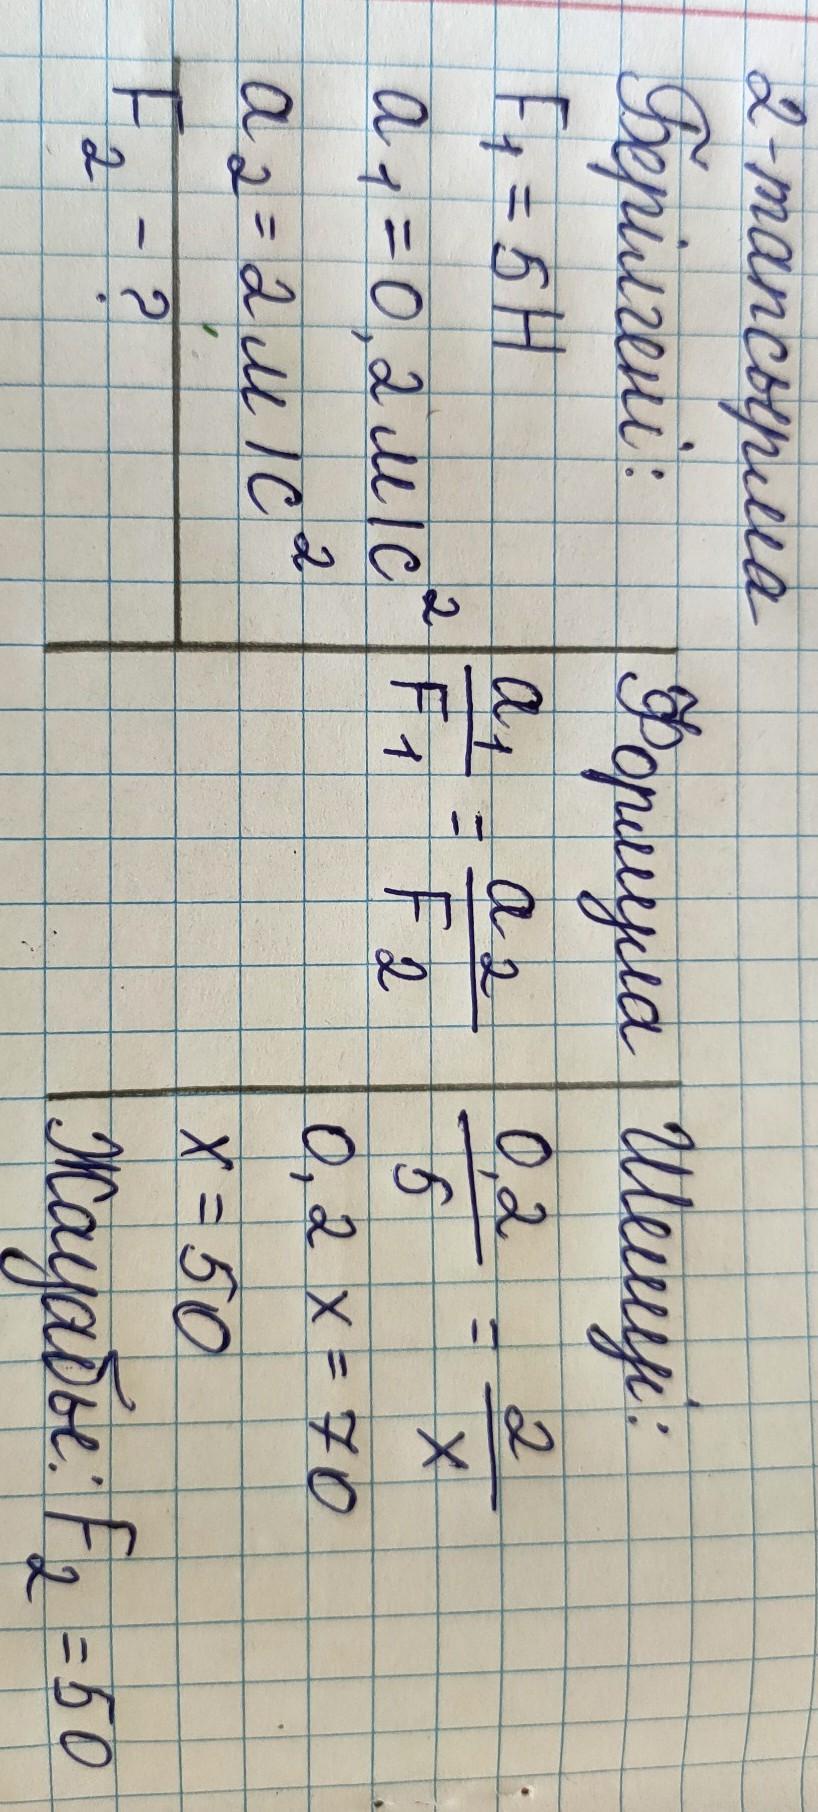 2-тапсырма
Берілгені:
F₁ = 5Н
a₁ = 0,2 м/с²
a₂ = 2 м/с²
F₂ - ?
Формула
a₁/F₁ = a₂/F₂
Шешуі:
0,2/5 = 2/x
0,2 x = 70
x = 50
Жауабы: F₂ = 50